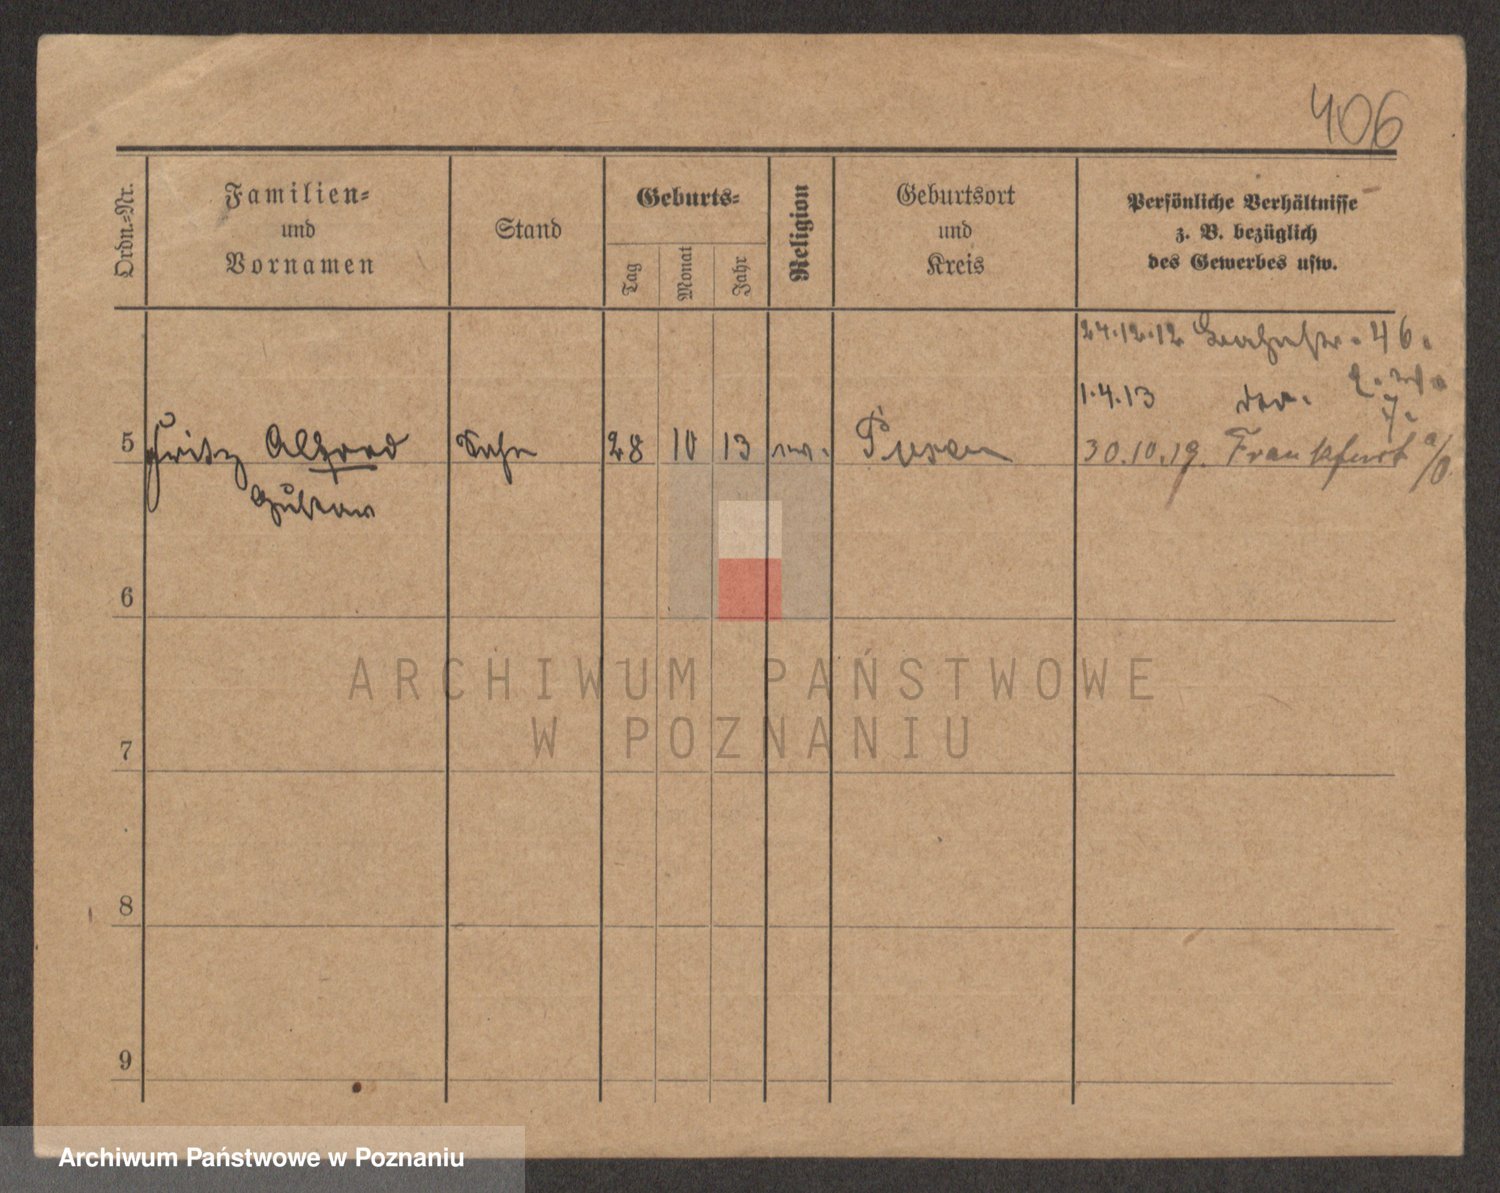 406
Ordn.-Nr.
Familien-
und
Vornamen
Stand
Geburts-
Tag
Monat
Jahr
Religion
Geburtsort
und
Kreis
Persönliche Verhältnisse
z. B. bezüglich
des Gewerbes usw.
24.12.12 46.
1.4.13
5 Fritz Alfred Sohn 28 10 13 ev. Posen 30.10.19. Frankfurt a/O.
Gustav
6
7
8
9
ARCHIWUM PAŃSTWOWE
W POZNANIU
Archiwum Państwowe w Poznaniu